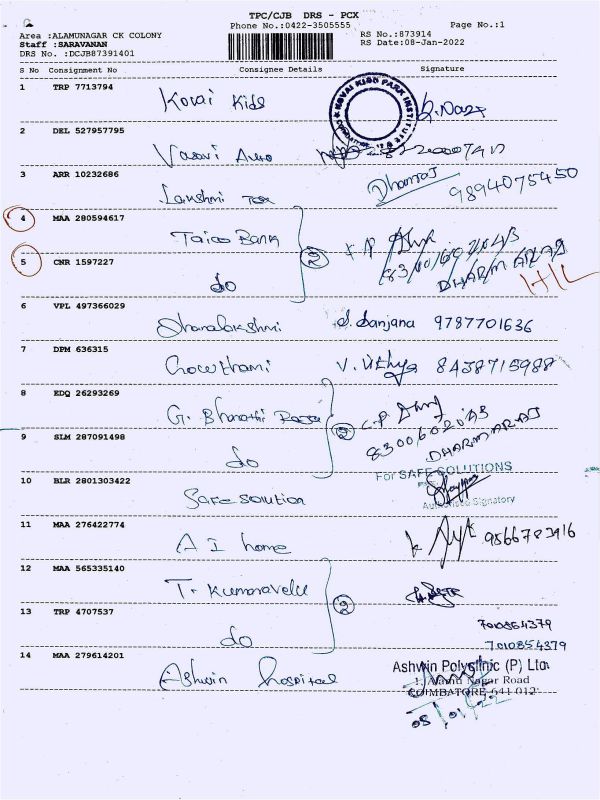 TPC/CJB DRS - PCX
Phone No.:0422-3505555
Page No.:1
Area :ALAMUNAGAR CK COLONY
RS No.:873914
Staff :SARAVANAN
RS Date:08-Jan-2022
DRS No. :DCJB87391401
S No Consignment No Consignee Details Signature
1 TRP 7713794 Kovai Kids
KOVAI KIDS PARK INSTITUTE
2 DEL 527957795 Vasavi Auto
3 ARR 10232686 Lakshmi Dhanraj 9894075450
4 MAA 280594617 Bank
2
5 CNR 1597227 do DHARMARAJ
6 VPL 497366029 Dhanalakshmi S. Sanjana 9787701636
7 DPM 636315 Gowthami V. Vithya 8438715988
8 EDQ 26293269 G. Bharathi
2
9 SLM 287091498 do DHARMARAJ
For SAFE SOLUTIONS
10 BLR 2801303422 Safe solution
Authorised Signatory
11 MAA 276422774 A I home 9566783916
12 MAA 565335140 T. Kumaravelu
2
13 TRP 4707537 do 7010854379
7010854379
14 MAA 279614201 Ashwin hospital
Ashwin Polyclinic (P) Ltd.
1, Alamu Nagar Road
COIMBATORE-641 012
08/01/22